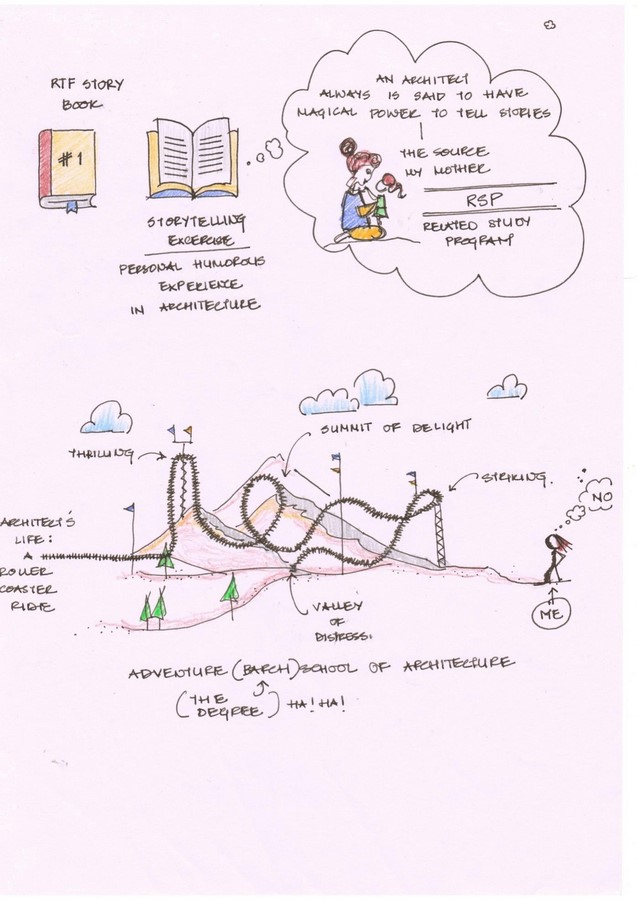 RTF STORY
BOOK
#1
STORYTELLING
EXCERCISE
PERSONAL HUMOROUS
EXPERIENCE
IN ARCHITECTURE
AN ARCHITECT
ALWAYS IS SAID TO HAVE
MAGICAL POWER TO TELL STORIES
THE SOURCE
MY MOTHER
RSP
RELATED STUDY
PROGRAM
SUMMIT OF DELIGHT
THRILLING
STRIKING.
NO
ARCHITECT'S
LIFE:
A
ROLLER
COASTER
RIDE
ME
VALLEY
OF
DISTRESS.
ADVENTURE (BARCH) SCHOOL OF ARCHITECTURE
(THE
DEGREE) HA! HA!